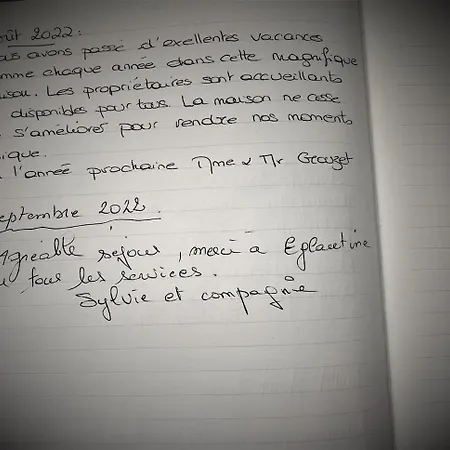 oût 2022:
us avons passé d'exellentes vacances
mme chaque année dans cette magnifique
ison. Les propriétaires sont accueillants
disponibles pour tous. La maison ne cesse
s'améliorer pour rendre nos moments
ique.
l'année prochaine Mme & Mr
eptembre 2022.
Agréable séjour, merci à Eglantine
tous les services.
Sylvie et compagnie